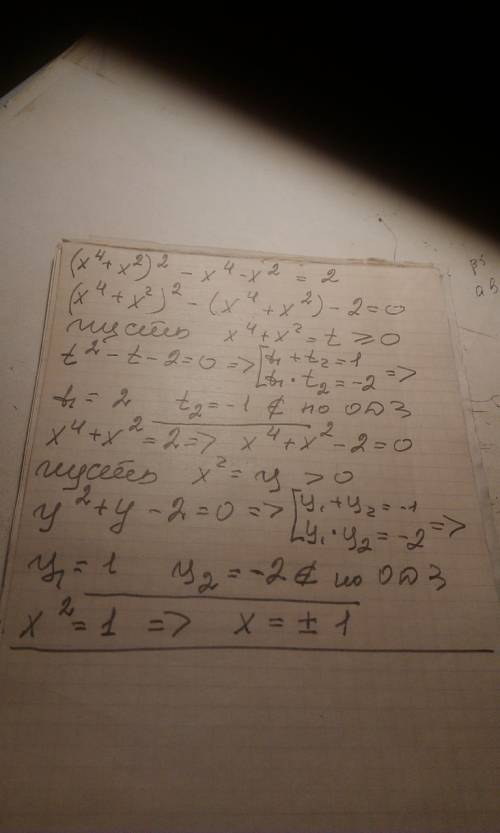 (x⁴+x²)² - x⁴ - x² = 2
(x⁴+x²)² - (x⁴+x²) - 2 = 0
пусть x⁴+x² = t ≥ 0
t² - t - 2 = 0 => [t₁ + t₂ = 1 t₁ · t₂ = -2 =>
t₁ = 2 t₂ = -1 ∉ по ОДЗ
x⁴ + x² = 2 => x⁴ + x² - 2 = 0
пусть x² = y > 0
y² + y - 2 = 0 => [y₁ + y₂ = -1 y₁ · y₂ = -2 =>
y₁ = 1 y₂ = -2 ∉ по ОДЗ
x² = 1 => x = ± 1